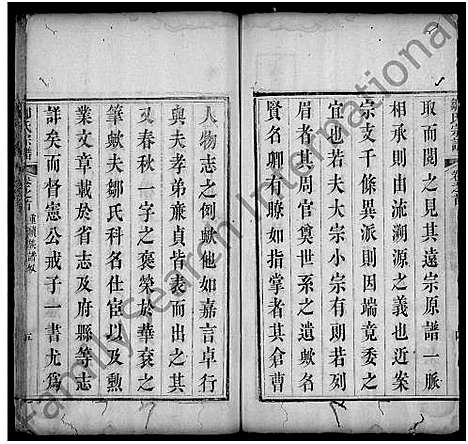 鄒氏宗譜
卷之首
取而閱之見其遠宗原譜一脈
相承而流溯源之義也近案
宗支條異派則因端竟委之
宜也若夫大宗小宗有若列
眉者其周官奠世系之遺歟名
賢名卿有瞭如指掌者其倉曹
人物志之例歟他如嘉言卓行
與夫孝弟亷貞皆表而出之其
又春秋一字之褒榮於華衮之
筆歟夫鄒氏科名仕宦以及勲
業文章載於省志及府縣等志
詳矣而督憲公戒子一書尤爲
氏宗譜
卷之首
重續族譜叙
五
FamilySearch International